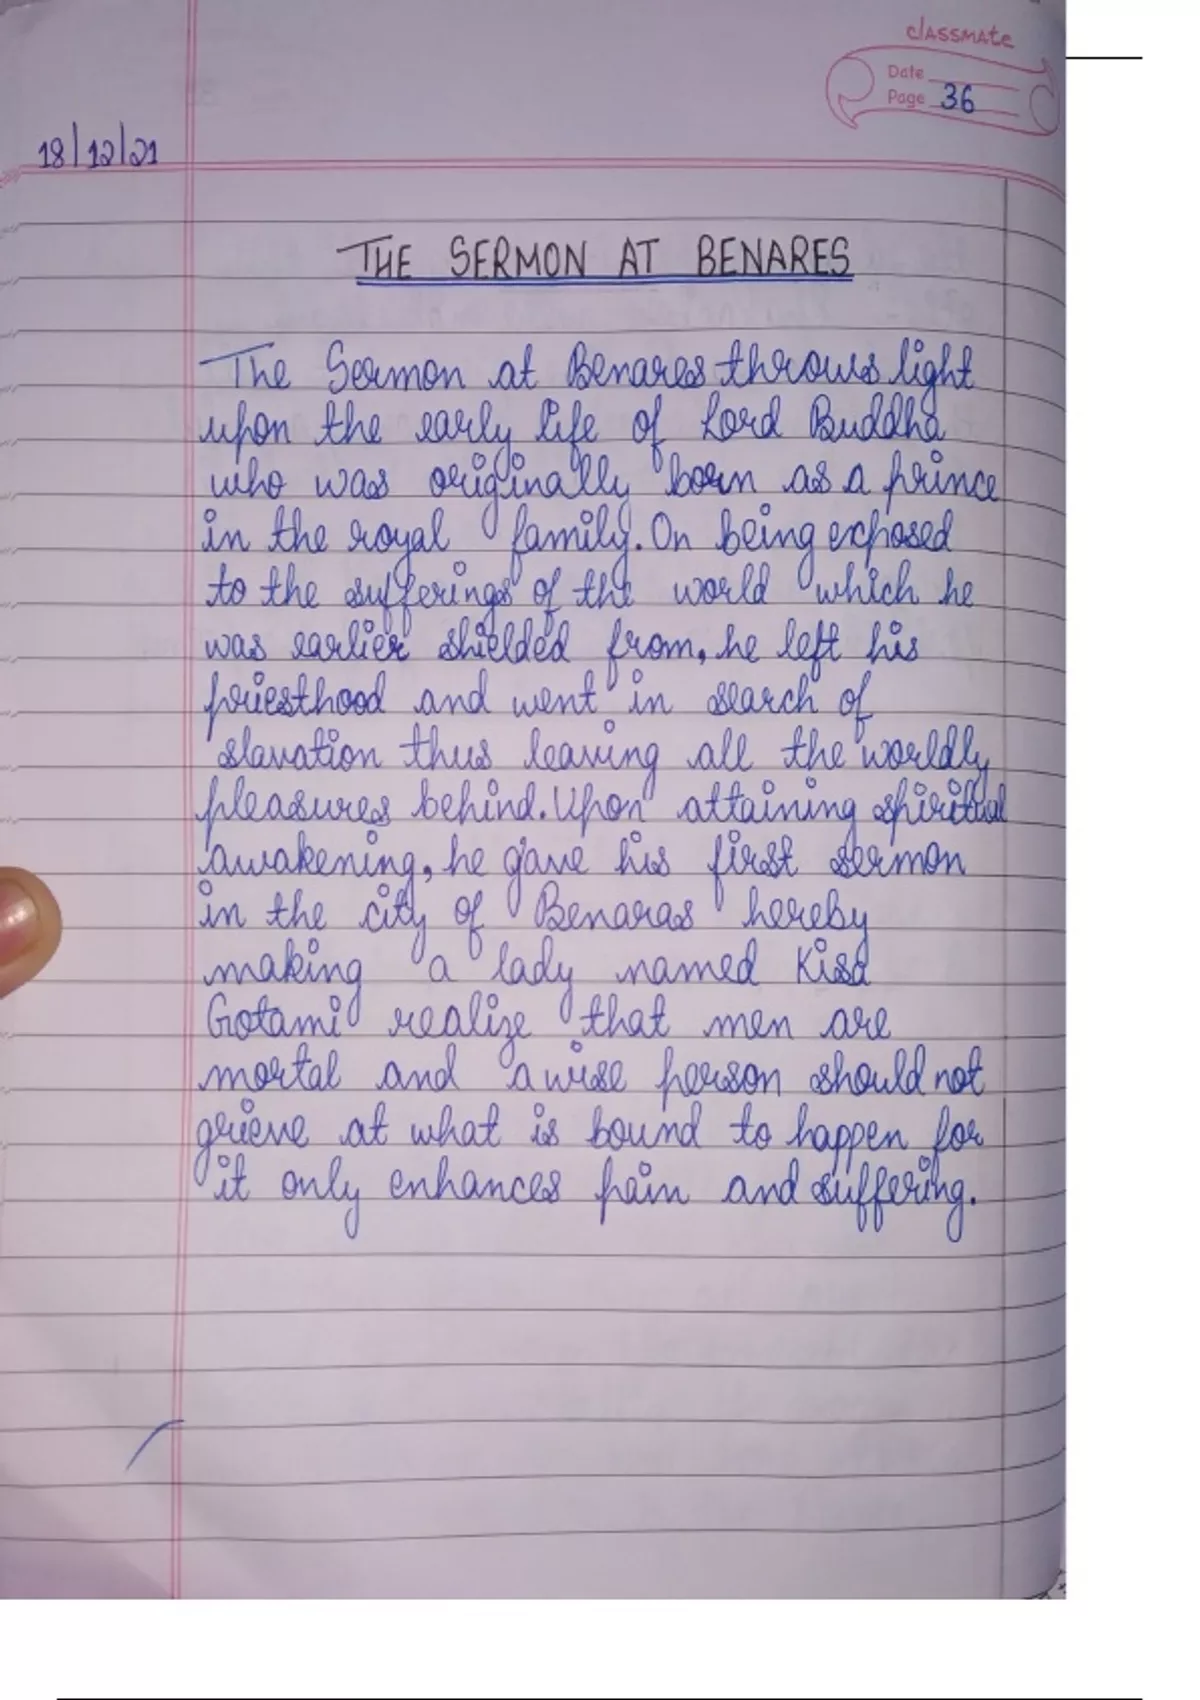 classmate
Date
Page 36
18/12/21
THE SERMON AT BENARES
The Sermon at Benares throws light
upon the early life of Lord Buddha
who was originally born as a prince
in the royal family. On being exposed
to the sufferings of the world which he
was earlier shielded from, he left his
priesthood and went in search of
slavation thus leaving all the worldly
pleasures behind. Upon attaining spiritual
awakening, he gave his first sermon
in the city of Benaras hereby
making a lady named Kisa
Gotami realize that men are
mortal and a wise person should not
grieve at what is bound to happen for
it only enhances pain and suffering.